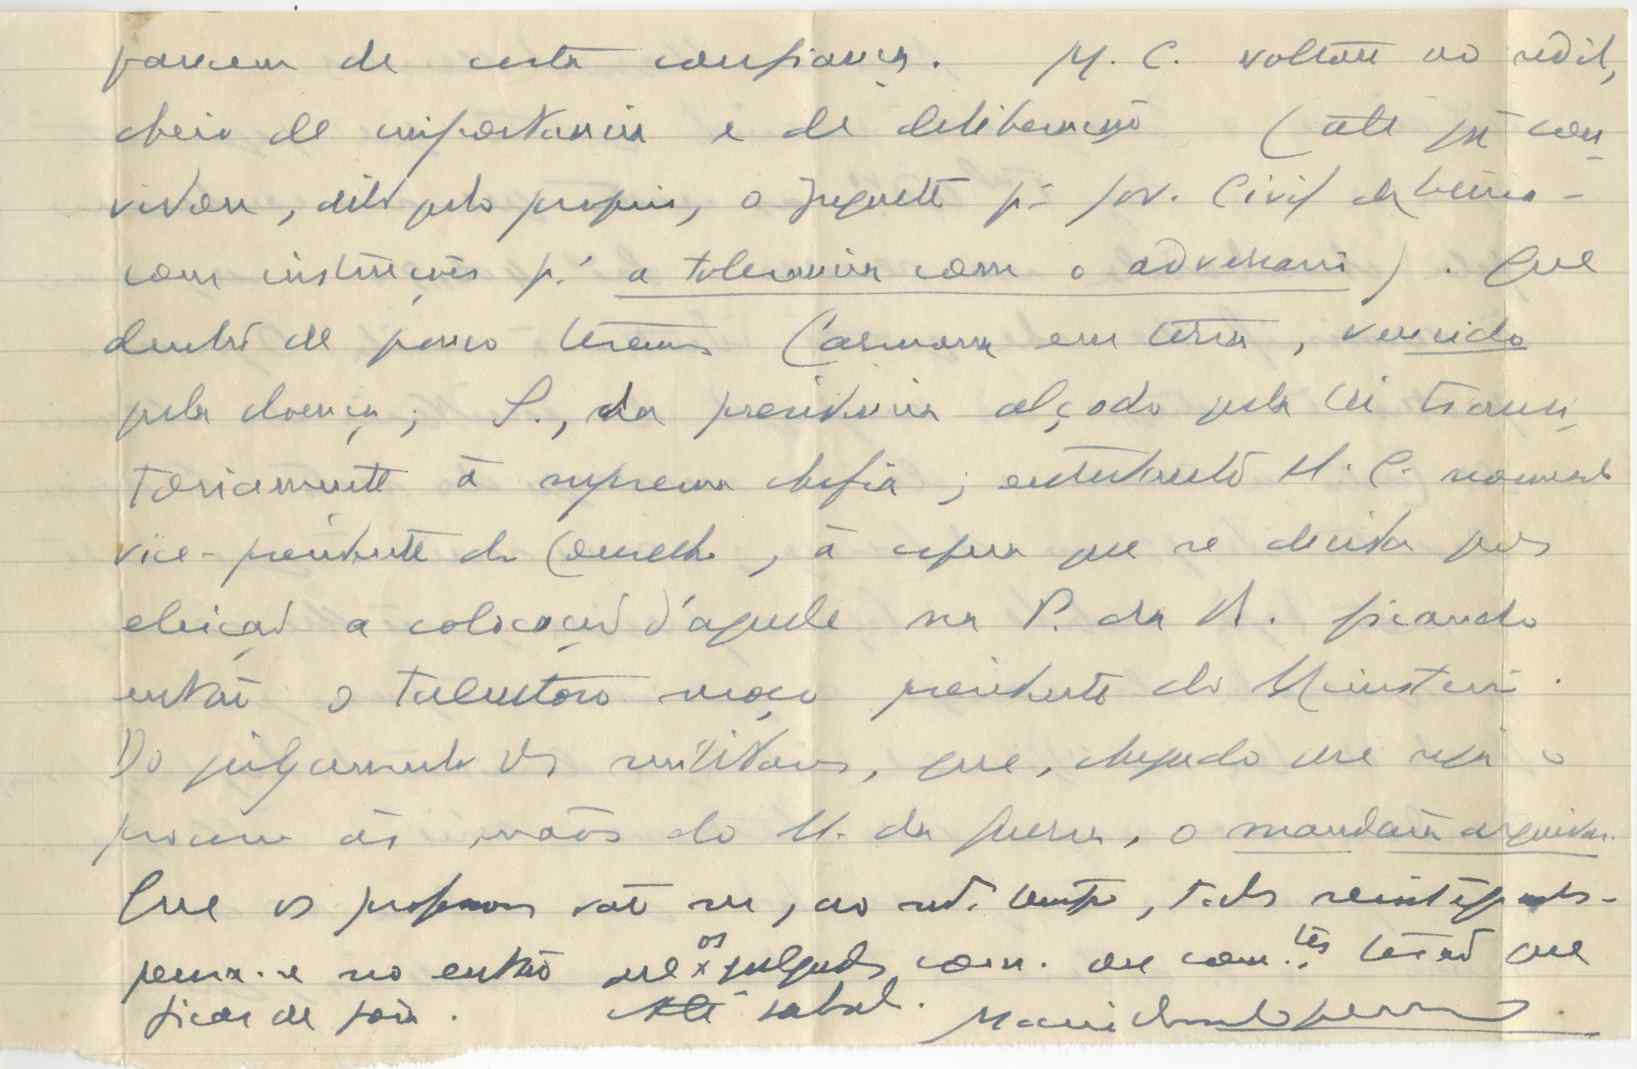 parecem de certa confiança. M. C. voltou ao redil,
cheio de importancia e de deliberação (até já con-
vidou, dito pelo proprio, o p.ª Gov. Civil da Beira -
com instruções p.ª a tolerancia com o adversario). Que
dentro de pouco teremos Carmona em terra, vencido
pela doença; S., da presidencia alçado pela lei transi-
toriamente á suprema chefia; entretanto M. C. nomeado
vice-presidente do Conselho, á espera que se decida por
eleição a colocação d'aquele na P. da R. ficando
então o talentoso moço presidente do Ministerio.
Do julgamento dos militares, que, chegado que seja o
processo ás mãos do M. da Guerra, o mandará arquivar.
Que os professores vão ser, ao m.mo tempo, todos reintegrados -
pensa-se no entanto que os julgados com. ou com.tes terão que
ficar de fora. Até sabado.